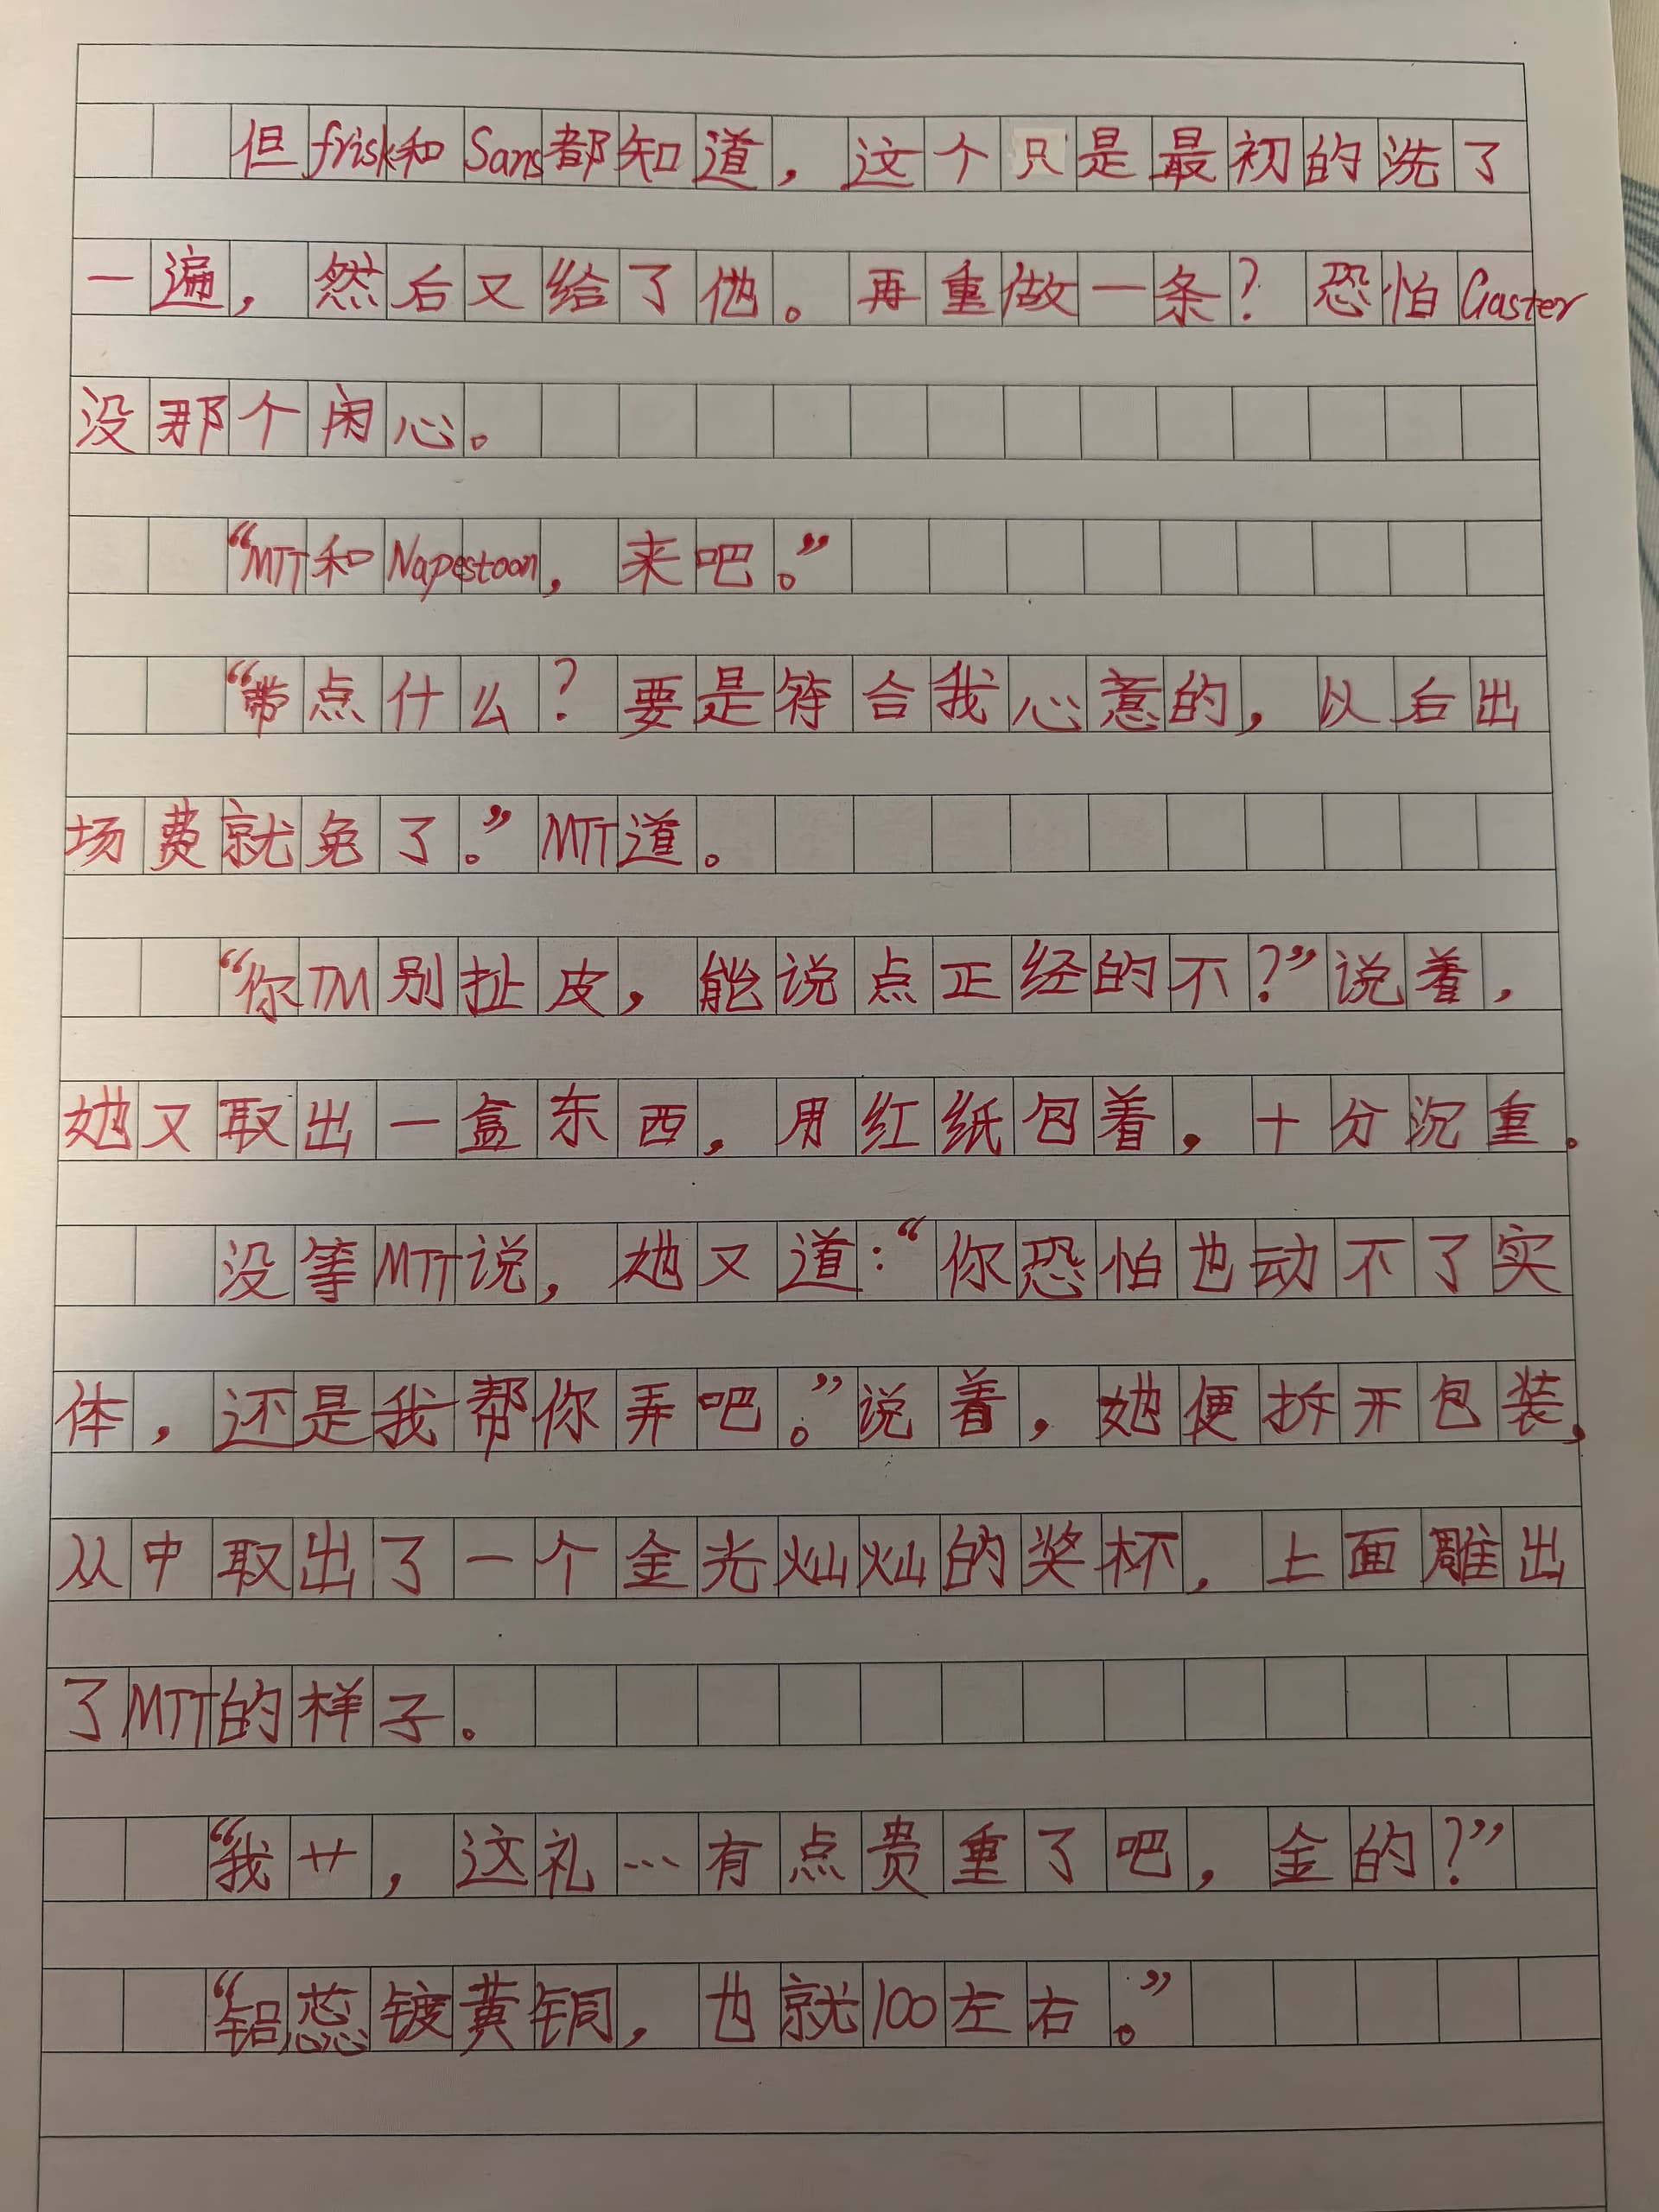 但frisk和Sans都知道，这个只是最初的洗了
一遍，然后又给了他。再重做一条？恐怕Gaster
没那个闲心。
“MTT和Napestoon，来吧。”
“带点什么？要是符合我心意的，以后出
场费就免了。”MTT道。
“你TM别扯皮，能说点正经的不？”说着，
她又取出一盒东西，用红纸包着，十分沉重。
没等MTT说，她又道：“你恐怕也动不了实
体，还是我帮你弄吧。”说着，她便拆开包装，
从中取出了一个金光灿灿的奖杯，上面雕出
了MTT的样子。
“我艹，这礼…有点贵重了吧，金的？”
“铝芯镀黄铜，也就100左右。”